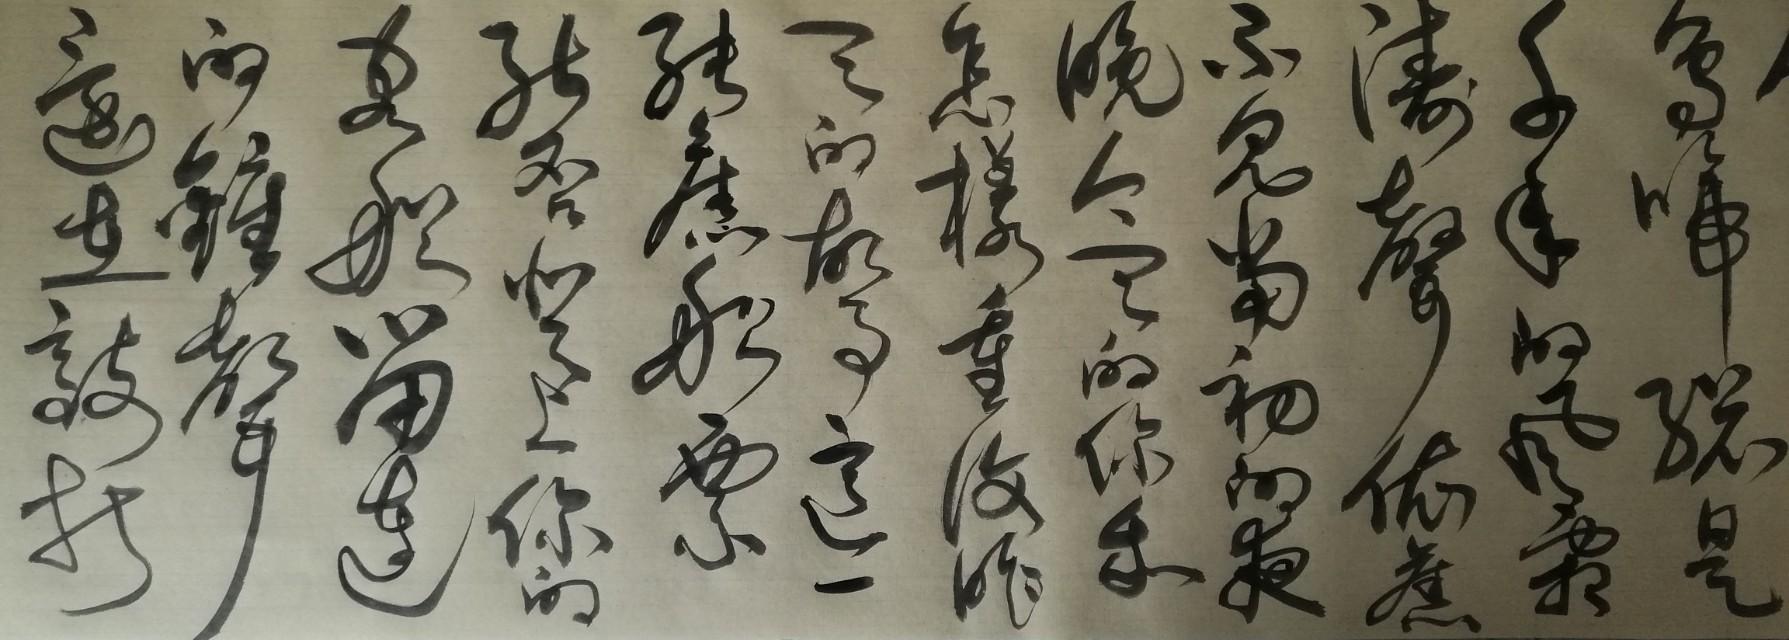 烏啼總是
千年的風霜
濤聲依舊
不見當初的夜
晚今天的你我
怎樣重復昨
天的故事這一
張舊船票
能否登上你的
客船留連
的鐘聲
還在敲打